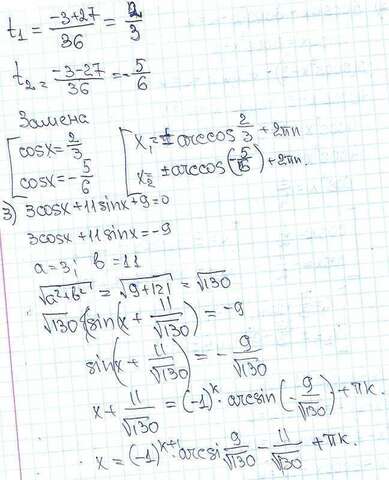 t₁ = (-3+27)/36 = 2/3
t₂ = (-3-27)/36 = -5/6
Замена
[cosx = 2/3   [x₁ = ± arccos 2/3 + 2πn
[cosx = -5/6   [x₂ = ± arccos(-5/6) + 2πn.
3) 3cosx + 11sinx + 9 = 0
3cosx + 11sinx = -9
a = 3; b = 11
√(a²+b²) = √(9+121) = √130
√130 (sin(x + 11/√130) = -9
sin(x + 11/√130) = -9/√130
x + 11/√130 = (-1)ᵏ · arcsin(-9/√130) + πk.
x = (-1)ᵏ⁺¹ · arcsi 9/√130 - 11/√130 + πk.